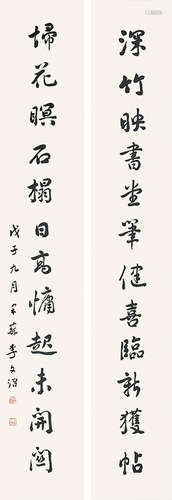 深竹映書堂筆健喜臨新獲帖
掃花暝石榻日高慵起未開關
戊子九月